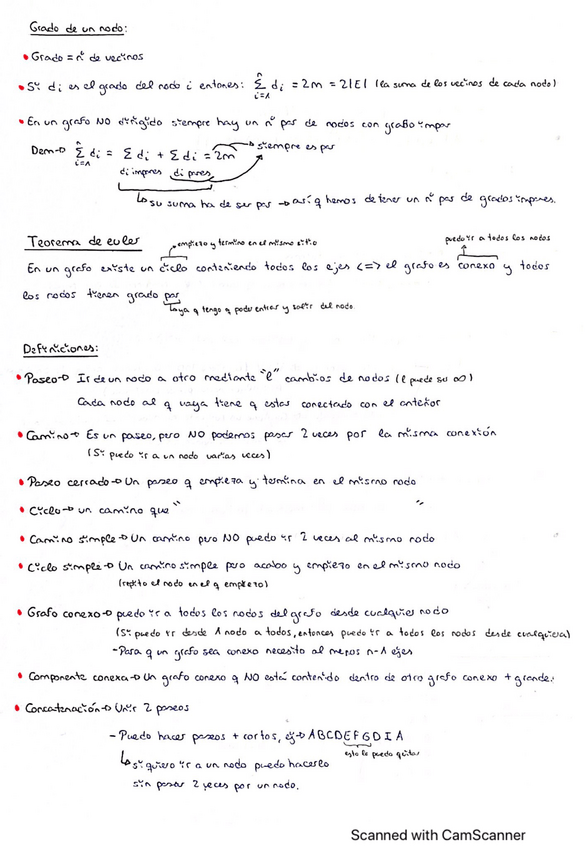 Grado de un nodo:
• Grado = nº de vecinos
• Si di es el grado del nodo i entonces: n Σ i=1 di = 2m = 2|E| (la suma de los vecinos de cada nodo)
• En un grafo NO dirigido siempre hay un nº par de nodos con grado impar
Dem→ n Σ i=1 di = Σ di + Σ di = 2m → siempre es par
di impares di pares
↳ su suma ha de ser par → así q hemos de tener un nº par de grados impares.
Teorema de euler
empiezo y termino en el mismo sitio
puedo ir a todos los nodos
En un grafo existe un ciclo conteniendo todos los ejes <=> el grafo es conexo y todos
los nodos tienen grado par
↳ ya q tengo q poder entrar y salir del nodo.
Definiciones:
• Paseo→ Ir de un nodo a otro mediante "l" cambios de nodos (l puede ser ∞)
Cada nodo al q vaya tiene q estar conectado con el anterior
• Camino→ Es un paseo, pero NO podemos pasar 2 veces por la misma conexión
(Si puedo ir a un nodo varias veces)
• Paseo cerrado→ Un paseo q empieza y termina en el mismo nodo
• Ciclo→ un camino que " "
• Camino simple→ Un camino pero NO puedo ir 2 veces al mismo nodo
• Ciclo simple→ Un camino simple pero acabo y empiezo en el mismo nodo
(repito el nodo en el q empiezo)
• Grafo conexo→ puedo ir a todos los nodos del grafo desde cualquier nodo
(Si puedo ir desde 1 nodo a todos, entonces puedo ir a todos los nodos desde cualquiera)
-Para q un grafo sea conexo necesito al menos n-1 ejes
• Componente conexa→ Un grafo conexo q NO está contenido dentro de otro grafo conexo + grande.
• Concatenación→ Unir 2 paseos
- Puedo hacer paseos + cortos, ej→ ABCDEFGDIA
esto lo puedo quitar
↳ si quiero ir a un nodo puedo hacerlo
sin pasar 2 veces por un nodo.
Scanned with CamScanner